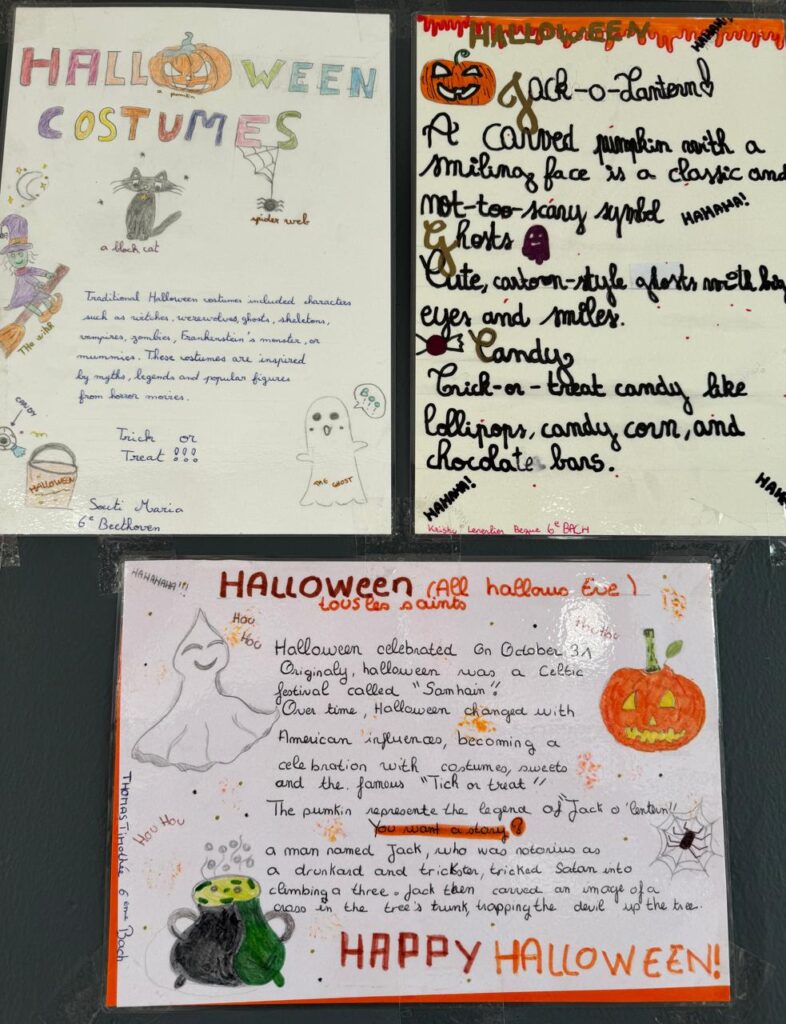 HALLOWEEN
a pumkin
COSTUMES
a black cat
spider web
The witch
Traditional Halloween costumes included characters
such as witches, werewolves, ghosts, skeletons,
vampires, zombies, Frankenstein's monster, or
mummies. These costumes are inspired
by myths, legends and popular figures
from horror movies.
BOO
CANDY
Trick or
Treat !!!
HALLOWEEN
THE GHOST
Souti Maria
6e Beethoven
HALLOWEEN
HAHAHA!
Jack-o-Lantern
A carved pumpkin with a
smiling face is a classic and
not-too-scary symbol
HAHAHA!
Ghosts
Cute, cartoon-style ghosts with big
eyes and smiles.
Candy
Trick-or-treat candy like
lollipops, candy corn, and
chocolate bars.
HAHAHA!
6e BACH
HAHAHAHA!!!
HALLOWEEN (All hallows Eve)
tous les saints
Hou
Hou
Hou Hou
Halloween celebrated On October 31
Originaly, halloween was a Celtic
festival called "Samhain".
Over time, Halloween changed with
American influences, becoming a
celebration with costumes, sweets
and the famous "Tick or treat"
The pumkin represente the legend of "Jack o'lentern"
You want a story?
Hou Hou
a man named Jack, who was notorius as
a drunkard and trickster, tricked Satan into
climbing a three. Jack then carved an image of a
cross in the tree's trunk, trapping the devil up the tree.
HAPPY HALLOWEEN!
THOMAS Timothée 6eme Bach